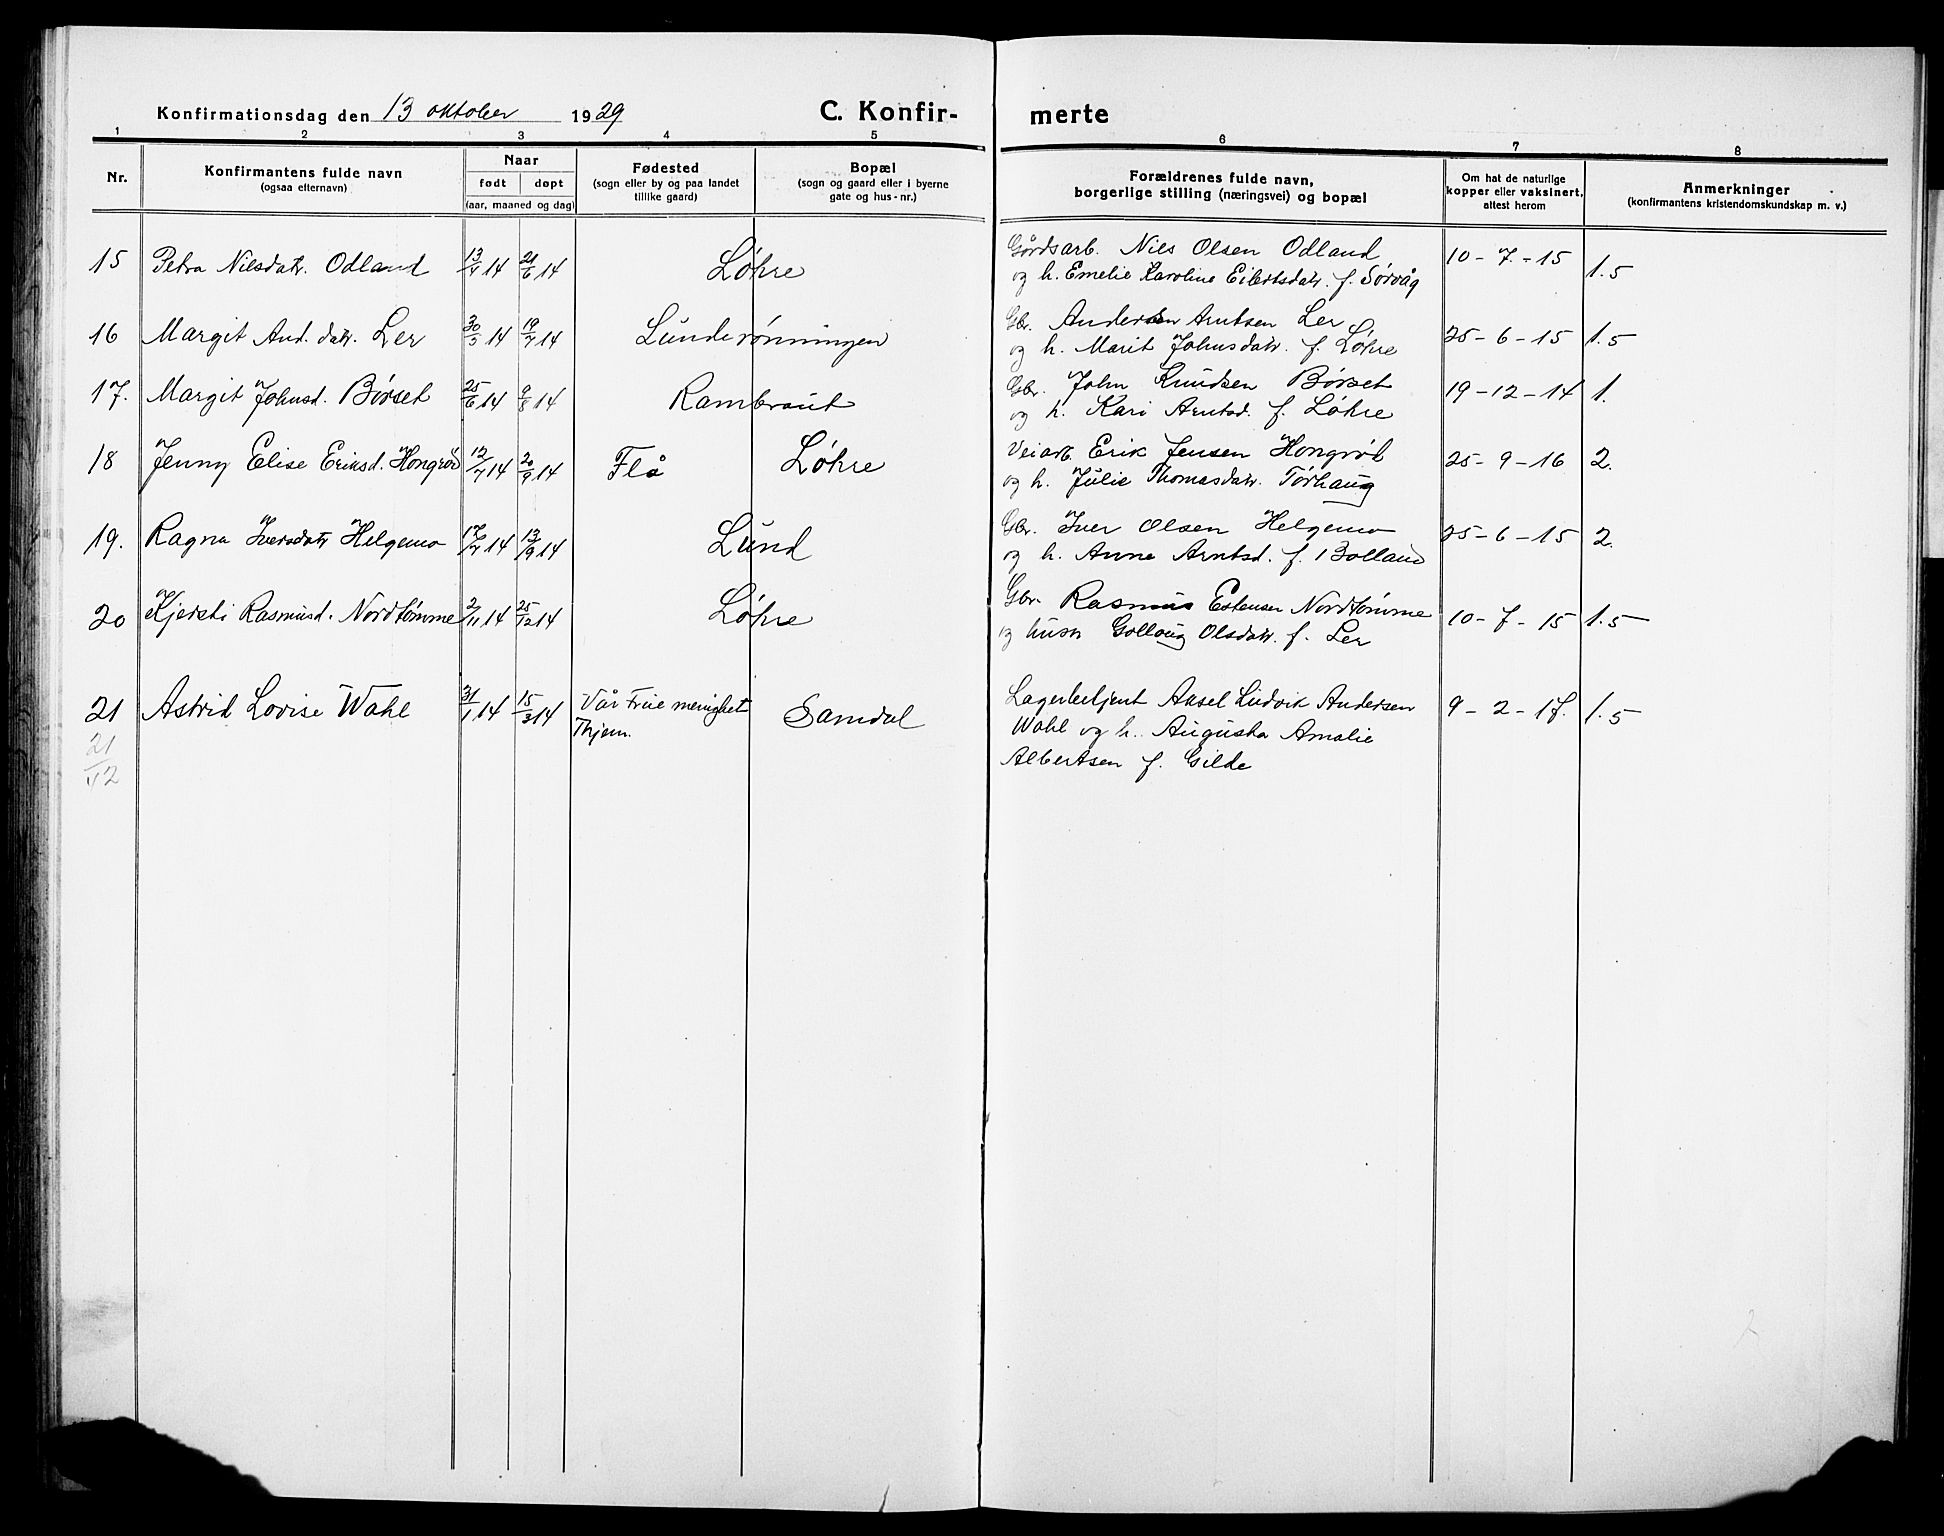 Konfirmationsdag den 13 oktober 1929 C. Konfir- merte
1 2 3 4 5 6 7 8
Nr. Konfirmantens fulde navn (ogsaa efternavn) Naar født døpt (aar, maaned og dag) Fødested (sogn eller by og paa landet tillike gaard) Bopæl (sogn og gaard eller i byerne gate og hus-nr.) Forældrenes fulde navn, borgerlige stilling (næringsvei) og bopæl Om hat de naturlige kopper eller vaksinert, attest herom Anmerkninger (konfirmantens kristendomskundskap m. v.)
15 Petra Nilsdatr. Odland 13/4 14 21/6 14 Løhre Gårdsarb. Nils Olsen Odland 10-7-15 1.5
og h. Emelie Karoline Eilertsdatr. f. Sørvåg
16 Margit And.datr. Ler 30/5 14 19/7 14 Lunderønningen Gbr. Anders Arntsen Ler 25-6-15 1.5
og h. Marit Johnsdatr. f. Løhre
17. Margit Johnsd. Børset 25/6 14 9/8 14 Rambraut Gbr. John Knudsen Børset 19-12-14 1.
og h. Kari Arntsd. f. Løhre
18 Jenny Elise Eriksd. Hongrød 12/7 14 20/9 14 Flå Løhre Veiarb. Erik Jensen Hongrød 25-9-16 2.
og h. Julie Thomasdatr. Tørhaug
19. Ragna Iversdatr Helgemo 17/7 14 13/9 14 Lund Gbr. Iver Olsen Helgemo 25-6-15 2.
og h. Anne Arntsd. f. Bolland
20 Kjersti Rasmusd. Nordtømme 2/11 14 25/12 14 Løhre Gbr. Rasmus Estensen Nordtømme 10-7-15 1.5
og husr Gollaug Olsdatr. f. Ler
21 Astrid Lovise Wahl 31/1 14 15/3 14 Vår Frue menighet Samdal Lagerbetjent Aksel Ludvik Andersen 9-2-17. 1.5
Thjem. Wahl og h. Augusta Amalie
21 Albertsen f. Gilde
42